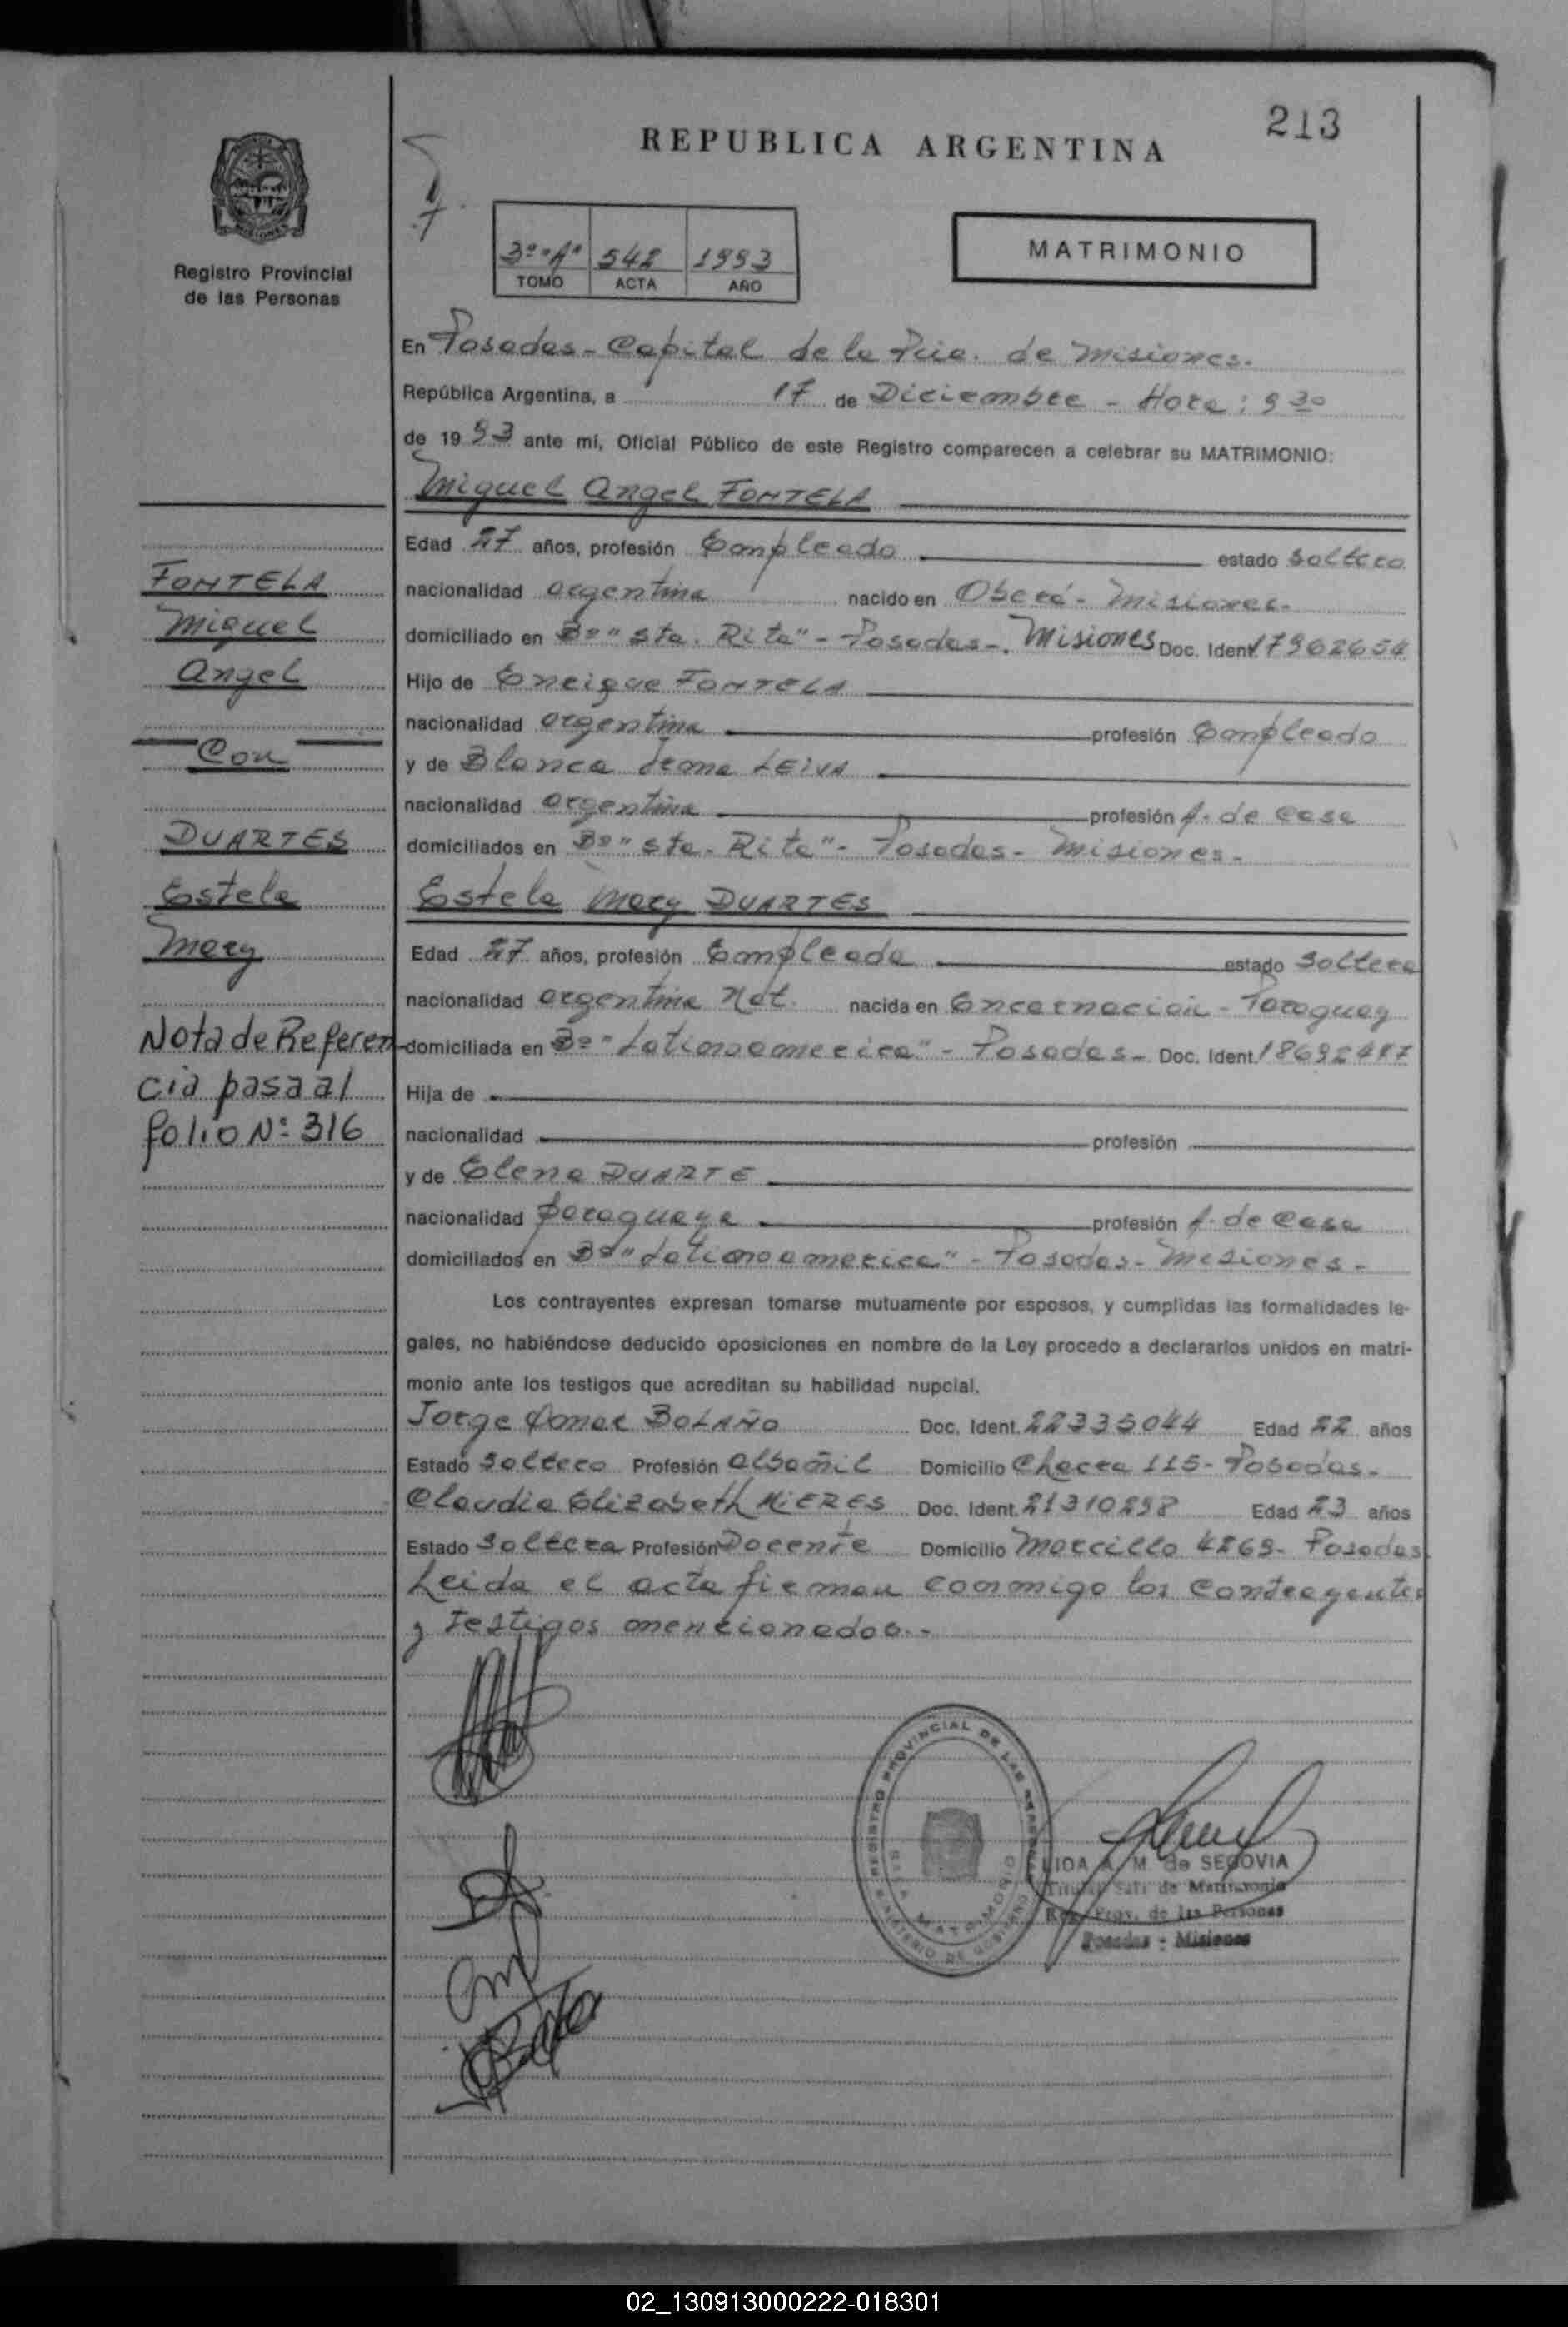 213
REPUBLICA ARGENTINA
Registro Provincial
de las Personas
3º "A" 542 1993
TOMO ACTA AÑO
MATRIMONIO
En Posadas - Capital de la Pcia. de Misiones.
República Argentina, a 17 de Diciembre - Hora: 9 30
de 19 93 ante mí, Oficial Público de este Registro comparecen a celebrar su MATRIMONIO:
Miguel Angel FONTELA
Edad 27 años, profesión Empleado estado soltero
nacionalidad argentina nacido en Oberá - Misiones.
domiciliado en Bº "Sta. Rita" - Posadas -. Misiones Doc. Ident. 17962654
Hijo de Enrique FONTELA
nacionalidad argentina profesión Empleado
y de Blanca Irma LEIVA
nacionalidad argentina profesión A. de casa
domiciliados en Bº "Sta. Rita" - Posadas - Misiones -
Estela Mary DUARTES
Edad 27 años, profesión Empleada estado soltera
nacionalidad argentina Nat. nacida en Encarnación - Paraguay
domiciliada en Bº "Latinoamerica" - Posadas - Doc. Ident.
Hija de
nacionalidad profesión
y de Elena DUARTE
nacionalidad paraguaya profesión A. de casa
domiciliados en Bº "Latinoamerica" - Posadas - Misiones -
Los contrayentes expresan tomarse mutuamente por esposos, y cumplidas las formalidades le-
gales, no habiéndose deducido oposiciones en nombre de la Ley procedo a declararlos unidos en matri-
monio ante los testigos que acreditan su habilidad nupcial.
Jorge Omar BOLAÑO Doc. Ident. 22335044 Edad 22 años
Estado soltero Profesión albañil Domicilio Chacra 115 - Posadas -
Claudia Elizabeth MIERES Doc. Ident. 21310298 Edad 23 años
Estado soltera Profesión Docente Domicilio Morcillo 4269 - Posadas
Leida el acta firman conmigo los contrayentes
y testigos mencionados. -
FONTELA
Miguel
Angel
Con
DUARTES
Estela
Mary
Nota de Referen-
cia pasa al
folio Nº 316
REGISTRO PROVINCIAL DE LAS PERSONAS
MINISTERIO DE GOBIERNO
MATRIMONIO
LIDA A. M. de SEGOVIA
Titular Sub. de Matrimonio
Reg. Prov. de las Personas
Posadas - Misiones
02_130913000222-018301